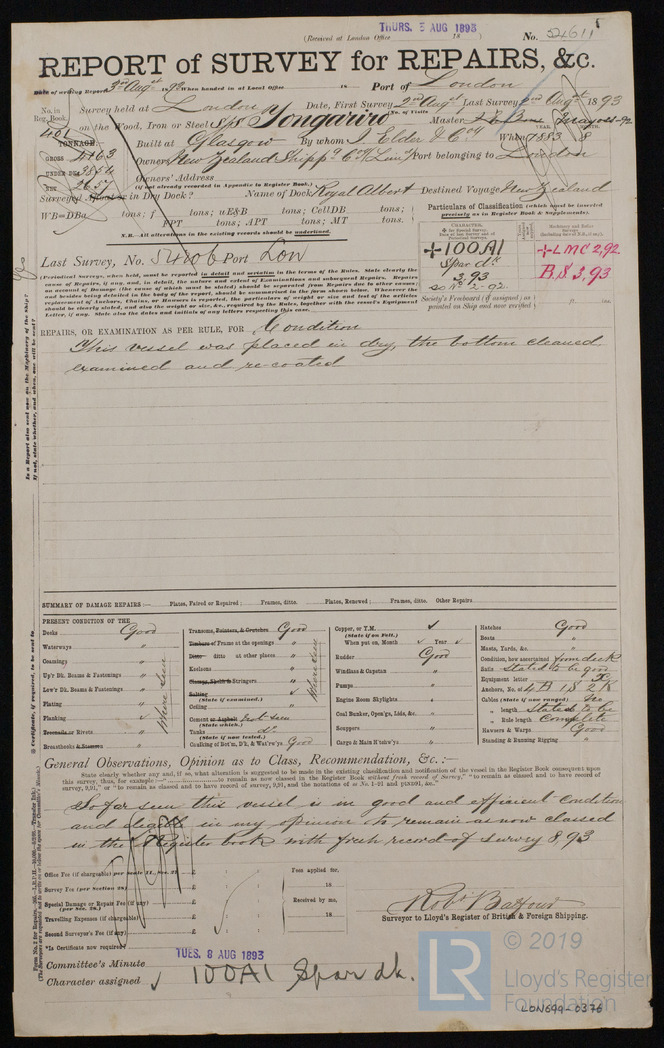 THURS. 3 AUG 1893
(Received at London Office 18 ) No. 54611
REPORT of SURVEY for REPAIRS, &c.
Date of writing Report 3rd Augst 1893 When handed in at Local Office 18 Port of London
No. in Reg. Book. Survey held at London Date, First Survey 2nd Augst Last Survey 2nd Augst 1893
401 on the Wood, Iron or Steel S/S Tongariro Master
TONNAGE:- Built at Glasgow By whom J. Elder & Coy When 1883 8
GROSS 4163 Owners New Zealand Shipp'g Coy Limd Port belonging to London
UNDER DK. 3854 Owners' Address
NET 2637 (if not already recorded in Appendix to Register Book.)
Surveyed Afloat or in Dry Dock? Name of Dock Royal Albert Destined Voyage New Zealand
WB=DBa tons; f tons; uE&B tons; CellDB tons;
FPT tons; APT tons; MT tons.
N.B.—All alterations in the existing records should be underlined.
Particulars of Classification (which must be inserted precisely as in Register Book & Supplements).
+100A1
Spar dk
3,93
+LMC 2,92
B.S 3,93
Last Survey, No. 54406 Port Lon
Society's Freeboard (if assigned) as painted on Ship and now verified ft. ins.
(Periodical Surveys, when held, must be reported in detail and seriatim in the terms of the Rules. State clearly the cause of Repairs, if any, and, in detail, the nature and extent of Examinations and subsequent Repairs. Repairs on account of Damage (the cause of which must be stated) should be separated from Repairs due to other causes; and besides being detailed in the body of the report, should be summarised in the form shown below. Whenever the replacement of Anchors, Chains, or Hawsers is reported, the particulars of weight or size and test of the articles should be clearly stated, and also the weight or size, &c., required by the Rules, together with the vessel's Equipment Letter, if any. State also the dates and initials of any letters respecting this case.
REPAIRS, OR EXAMINATION AS PER RULE, FOR Condition
This vessel was placed in dry, the bottom cleaned,
examined and re-coated
SUMMARY OF DAMAGE REPAIRS :— Plates, Faired or Repaired; Frames, ditto. Plates, Renewed; Frames, ditto. Other Repairs
PRESENT CONDITION OF THE
Decks Good
Waterways "
Coamings "
Up'r Dk. Beams & Fastenings "
Low'r Dk. Beams & Fastenings "
Plating "
Planking
Treenails or Rivets "
Breasthooks & Stemson "
Where seen
Transoms, Pointers, & Crutches Good
Timbers of Frame at the openings "
Ditto ditto at other places "
Keelsons "
Clamps, Shelfs & Stringers "
Salting (State if examined.)
Ceiling "
Cement or Asphalt (State which.) not seen
Tanks (State if now tested.) do.
Caulking of Bot'm, D'k, & Wat'rw'ys Good
Where seen
Copper, or Y.M. (State if on Felt.)
When put on, Month Year
Rudder Good
Windlass & Capstan "
Pumps "
Engine Room Skylights "
Coal Bunker, Open'gs, Lids, &c. "
Scuppers "
Cargo & Main H'tchw'ys "
Hatches Good
Boats "
Masts, Yards, &c. "
Condition, how ascertained from deck
Sails Stated to be good
Equipment letter
Anchors, No. of 4 B 1 S 2 K
Cables (State if now ranged) No
" length Stated to be
" Rule length Complete
Hawsers & Warps Good
Standing & Running Rigging "
General Observations, Opinion as to Class, Recommendation, &c. :—
State clearly whether any and, if so, what alteration is suggested to be made in the existing classification and notification of the vessel in the Register Book consequent upon
So far seen this vessel is in good and efficient condition
and eligible in my opinion to remain as now classed
in the Register book with fresh record of survey 8,93
Office Fee (if chargeable) per Scale 21, Sec. 27 £ Fees applied for,
Survey Fee (per Section 28) £ 18
Special Damage or Repair Fee (if any) (per Sec. 28.) £ Received by me,
Travelling Expenses (if chargeable) £ 18
Second Surveyor's Fee (if any) £
*Is Certificate now required
Robt Balfour
Surveyor to Lloyd's Register of British & Foreign Shipping.
TUES. 8 AUG 1893
Committee's Minute
Character assigned 100A1 Spar dk.
LR
© 2019
Lloyd's Register
Foundation
LON699-0376